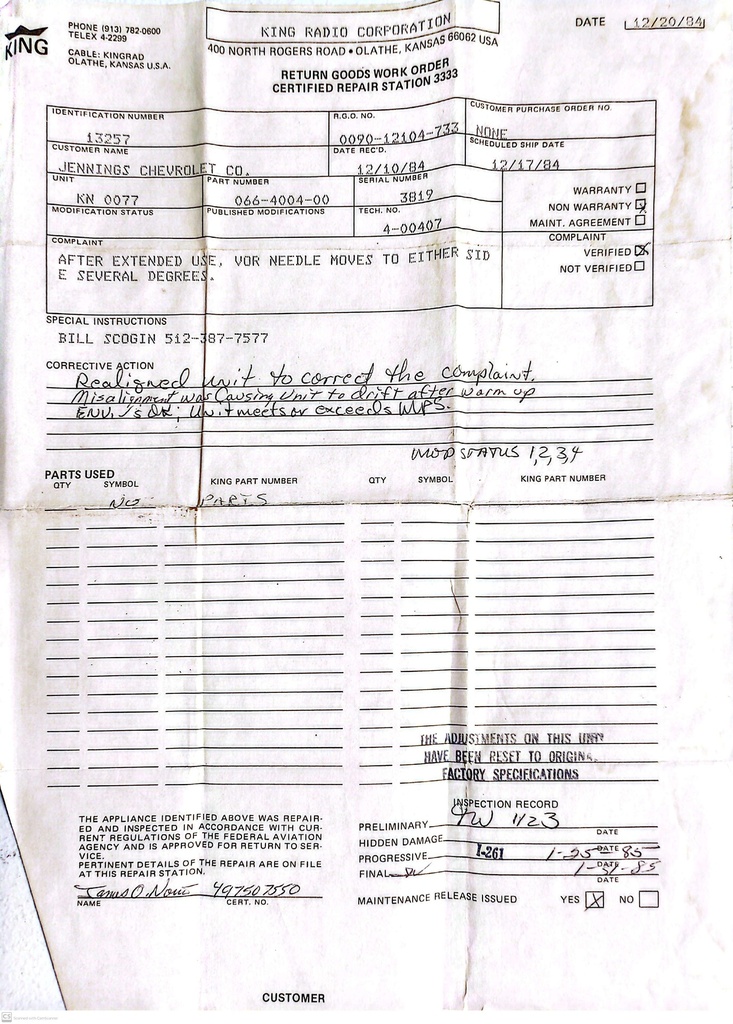 KING
PHONE (913) 782-0600
TELEX 4-2299
CABLE: KINGRAD
OLATHE, KANSAS U.S.A.
KING RADIO CORPORATION
400 NORTH ROGERS ROAD • OLATHE, KANSAS 66062 USA
RETURN GOODS WORK ORDER
CERTIFIED REPAIR STATION 3333
DATE 12/20/84
IDENTIFICATION NUMBER
13257
R.G.O. NO.
0090-12104-733
CUSTOMER PURCHASE ORDER NO.
NONE
CUSTOMER NAME
JENNINGS CHEVROLET CO.
DATE REC'D.
12/10/84
SCHEDULED SHIP DATE
12/17/84
UNIT
KN 0077
PART NUMBER
066-4004-00
SERIAL NUMBER
3819
MODIFICATION STATUS
PUBLISHED MODIFICATIONS
TECH. NO.
4-00407
WARRANTY
NON WARRANTY X
MAINT. AGREEMENT
COMPLAINT
VERIFIED X
NOT VERIFIED
COMPLAINT
AFTER EXTENDED USE, VOR NEEDLE MOVES TO EITHER SID
E SEVERAL DEGREES.
SPECIAL INSTRUCTIONS
BILL SCOGIN 512-387-7577
CORRECTIVE ACTION
Realigned unit to correct the complaint.
Misalignment was causing unit to drift after warm up
ENV. is OK; Unit meets or exceeds MPS.
MOD STATUS 1,2,3,4
PARTS USED
QTY SYMBOL KING PART NUMBER QTY SYMBOL KING PART NUMBER
NO PARTS
THE ADJUSTMENTS ON THIS UNIT
HAVE BEEN RESET TO ORIGINA
FACTORY SPECIFICATIONS
THE APPLIANCE IDENTIFIED ABOVE WAS REPAIR-
ED AND INSPECTED IN ACCORDANCE WITH CUR-
RENT REGULATIONS OF THE FEDERAL AVIATION
AGENCY AND IS APPROVED FOR RETURN TO SER-
VICE.
PERTINENT DETAILS OF THE REPAIR ARE ON FILE
AT THIS REPAIR STATION.
James O. 497507550
NAME CERT. NO.
INSPECTION RECORD
PRELIMINARY 1123
DATE
HIDDEN DAMAGE
DATE
PROGRESSIVE I-261 1-25-85
DATE
FINAL 1-31-85
DATE
MAINTENANCE RELEASE ISSUED YES X NO
CUSTOMER
CS Scanned with CamScanner